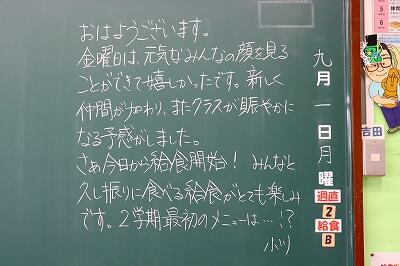 おはようございます。
金曜日は、元気なみんなの顔を見る
ことができて嬉しかったです。新しく
仲間が加わり、またクラスが賑やかに
なる予感がしました。
さぁ今日から給食開始！ みんなと
久し振りに食べる給食がとても楽しみ
です。2学期最初のメニューは…!?
小ツ
九月一日月曜
週直
2
給食
B
吉田
5
6